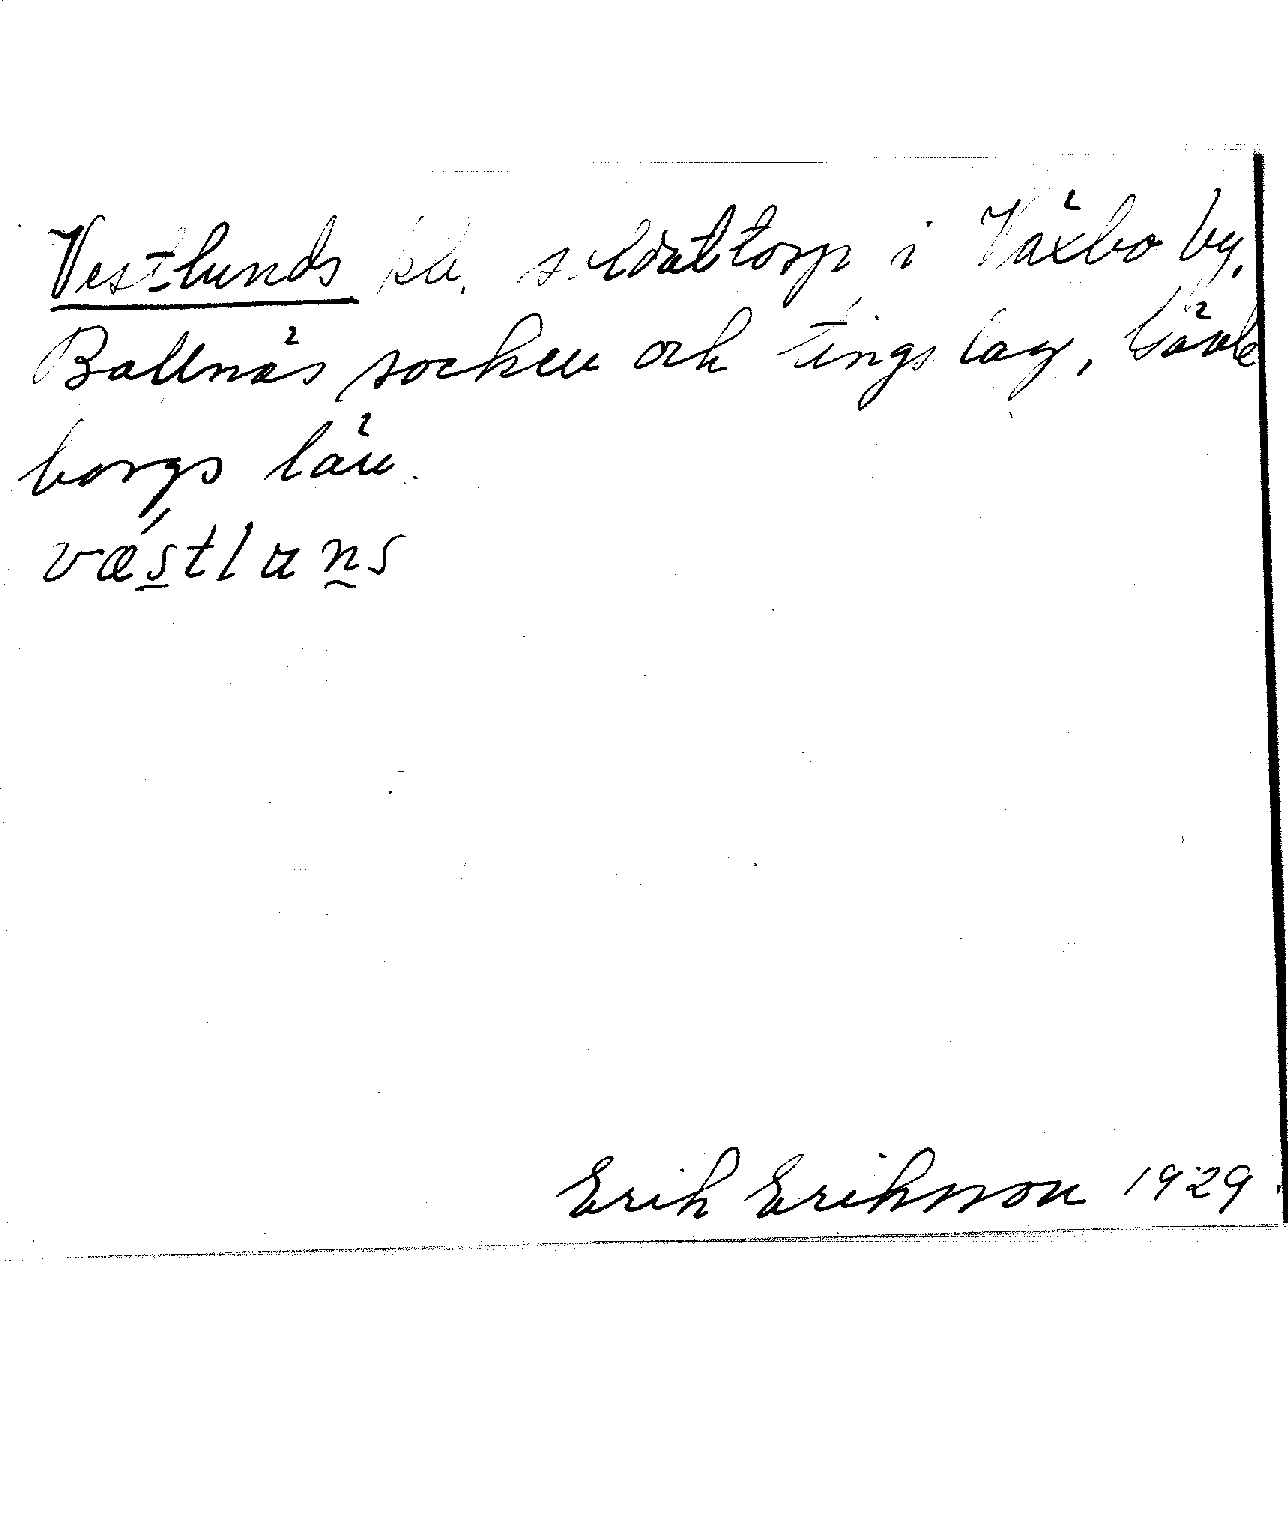 Vestlunds kb. soldattorp i Växbo by,
Bollnäs socken och tingslag, Gävle
borgs län.
væ´stluns
Erik Eriksson 1929